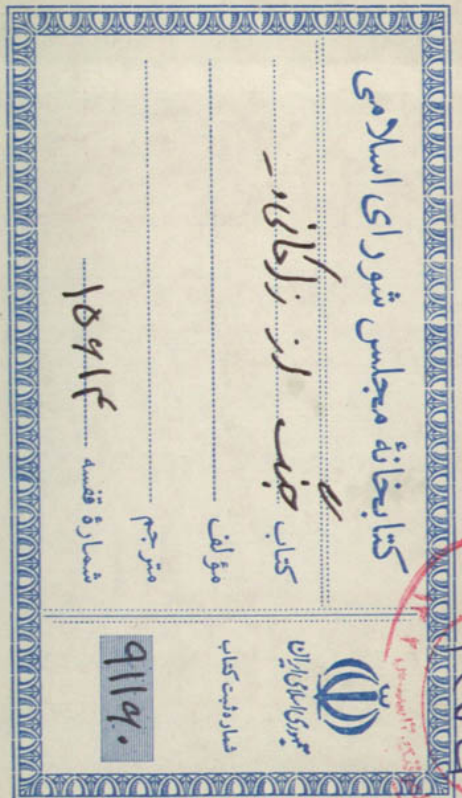 کتابخانهٔ مجلس شورای اسلامی
کتاب
مؤلف
مترجم
شمارهٔ قفسه ۱۵۶۱۴
جمهوری اسلامی ایران
شماره ثبت کتاب
۹۱۱۶۰